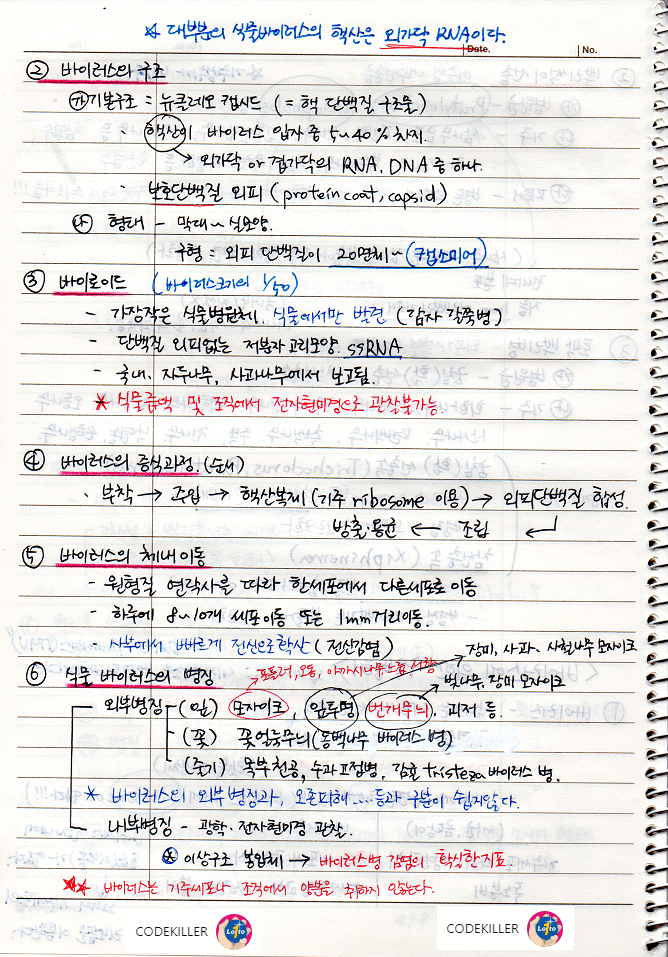 * 대부분의 식물바이러스의 핵산은 외가닥 RNA이다.
Date. No.
② 바이러스의 구조
㉮ 기본구조 = 뉴클레오 캡시드 (= 핵 단백질 구조물)
- 핵산이 바이러스 입자 중 5~40% 차지.
→ 외가닥 or 겹가닥의 RNA, DNA 중 하나.
- 보호단백질 외피 (protein coat, capsid)
㉯ 형태 - 막대~실모양.
구형 = 외피 단백질이 20면체~ (캡소미어)
③ 바이로이드 (바이러스크기의 1/50)
- 가장작은 식물병원체, 식물에서만 발견 (감자 갈쭉병)
- 단백질 외피없는 저분자 고리모양. ssRNA
- 국내, 자두나무, 사과나무에서 보고됨.
* 식물즙액 및 조직에서 전자현미경으로 관찰불가능.
④ 바이러스의 증식과정. (순서)
- 부착 → 주입 → 핵산복제 (기주 ribosome 이용) → 외피단백질 합성.
방출·용균 ← 조립
⑤ 바이러스의 체내이동
- 원형질 연락사를 따라 한세포에서 다른세포로 이동
- 하루에 8~10개 세포이동 또는 1mm거리이동.
- 사부에서 빠르게 전신으로확산 (전신감염)
장미, 사과, 사철나무 모자이크
⑥ 식물 바이러스의 병징
포플러, 오동, 아까시나무, 느릅
벚나무, 장미 모자이크
외부병징 - (잎) 모자이크, 잎투명, 번개무늬, 괴저 등.
(꽃) 꽃얼룩무늬 (동백나무 바이러스 병)
(줄기) 목부천공, 수피 표점병, 감귤 tristeza 바이러스 병.
* 바이러스의 외부병징과, 오존피해....등과 구분이 쉽지않다.
내부병징 - 광학·전자현미경 관찰.
이상구조 봉입체 → 바이러스병 감염의 확실한 지표.
** 바이러스는 기주세포나 조직에서 양분을 취하지 않는다.
CODEKILLER Lotto CODEKILLER Lotto